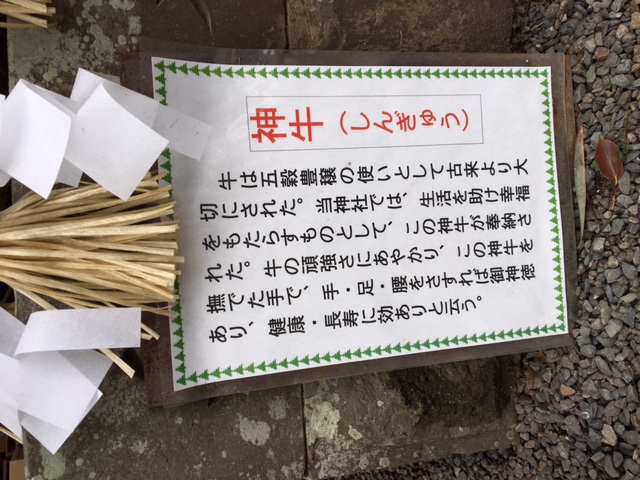 神牛（しんぎゅう）
牛は五穀豊穣の使いとして古来より大
切にされた。当神社では、生活を助け幸福
をもたらすものとして、この神牛が奉納さ
れた。牛の頑強さにあやかり、この神牛を
撫でた手で、手・足・腰をさすれば御神徳
あり、健康・長寿に効ありと云う。